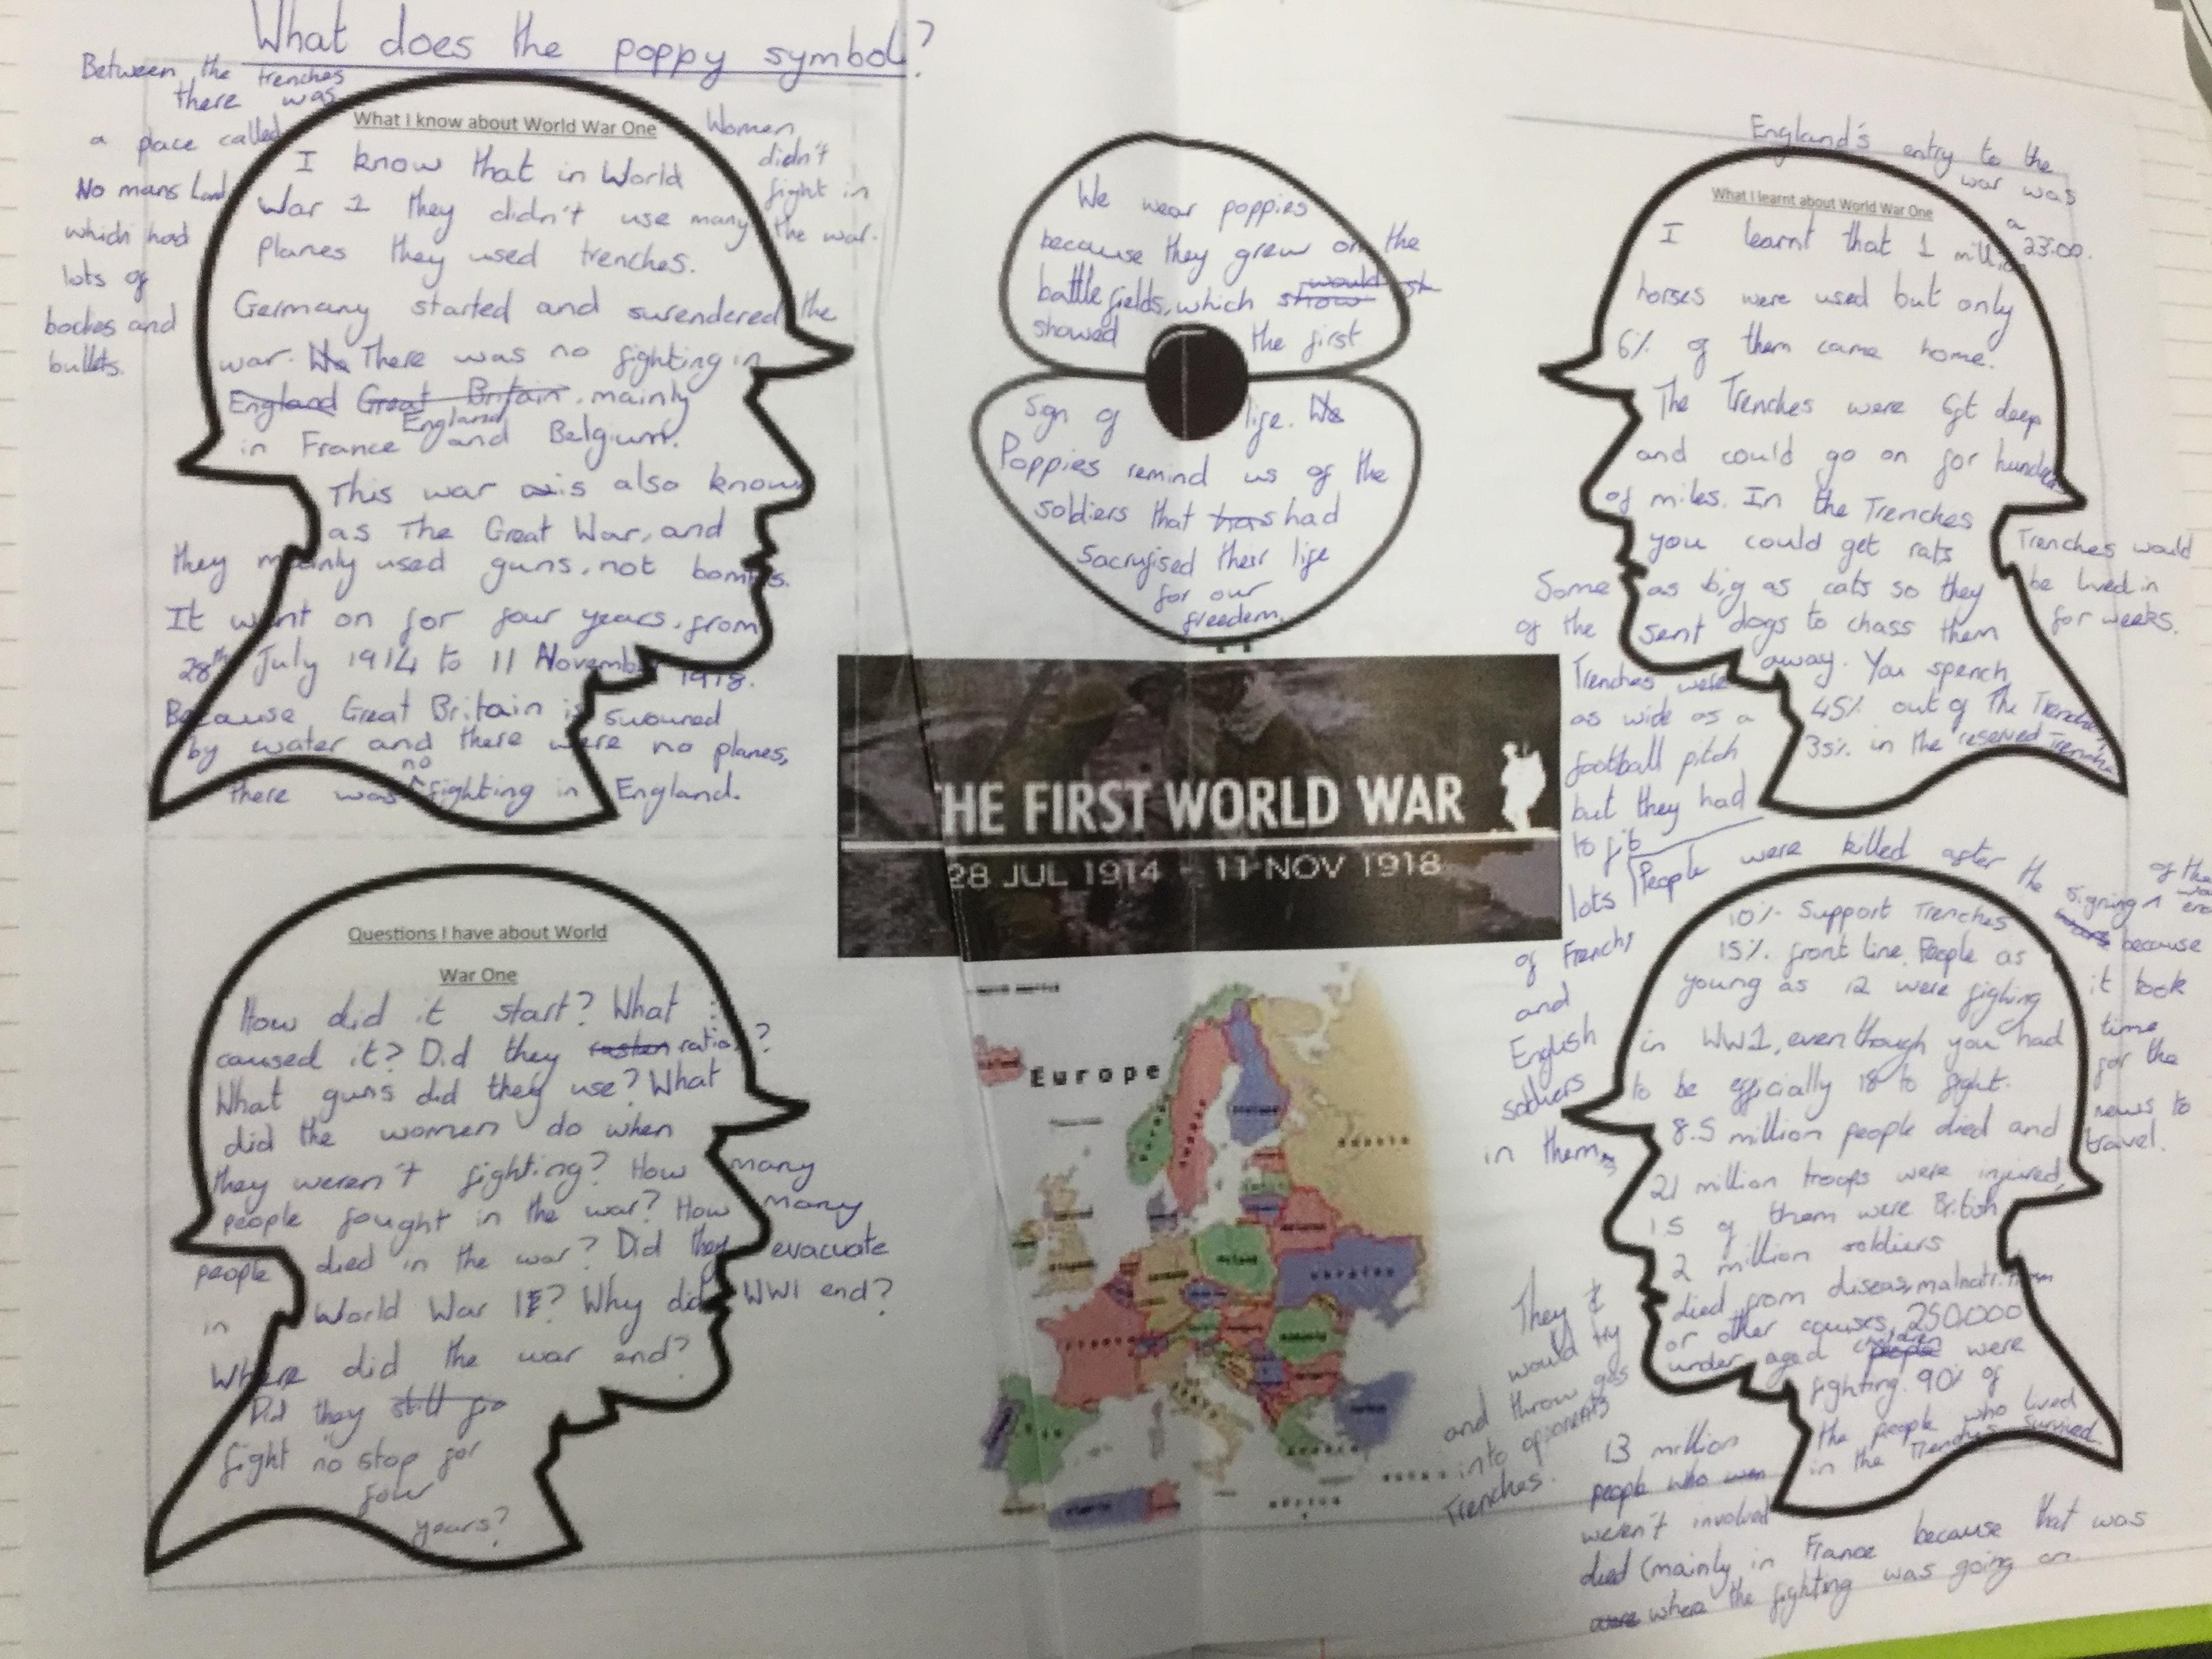 What does the poppy symbol?
Between the trenches
there was
a place called
No mans land
which had
lots of
bodies and
bullets.
What I know about World War One
I know that in World
War 1 they didn't use many
planes they used trenches.
Germany started and surendered the
war. There was no fighting in
England Great Britain. mainly
England
in France and Belgium.
This war is also known
as The Great War, and
they mainly used guns, not bombs.
It went on for four years, from
28th July 1914 to 11 November 1918.
Because Great Britain is swouned
by water and there were no planes,
no
there was fighting in England.
Women
didn't
fight in
the war.
We wear poppies
because they grew on the
battle fields, which show would sh
showed the first
Sign of life. We
Poppies remind us of the
soldiers that has had
Sacrufised their life
for our
freedom.
England's entry to the
war was
a
23:00.
What I learnt about World War One
I learnt that 1 million
horses were used but only
6% of them came home.
The Trenches were 6ft deep
and could go on for hundred
of miles. In the Trenches
you could get rats
as big as cats so they
sent dogs to chass them
away. You spench
45% out of The Trenches
35% in the reserved Trenches
Trenches would
be lived in
for weeks.
Some
of the
Trenches were
as wide as a
football pitch
but they had
to fit
lots
of French
and
English
soldiers
in them.
THE FIRST WORLD WAR
28 JUL 1914 - 11 NOV 1918
Questions I have about World
War One
How did it start? What
caused it? Did they ration?
What guns did they use? What
did the women do when
they weren't fighting? How many
people fought in the war? How many
people died in the war? Did they evacuate
in World War 1? Why did WW1 end?
Where did the war end?
Did they still go
fight no stop for
four
years?
Europe
Russia
Ukraine
France
People were killed after the
signing of the war end
because
it took
time
for the
news to
travel.
10% Support Trenches
15% front line. People as
young as 12 were fighing
in WW1, even though you had
to be officially 18 to fight.
8.5 million people died and
21 million troops were injured,
1.5 of them were British
2 million soldiers
died from diseas, malnutrition
or other causes, 250,000
under aged children people were
fighting. 90% of
the people who lived
in the Trenches survived
They
would try
and throw gas
into opponents
Trenches.
13 million
people who wen
weren't involved
died (mainly in France because that was
were where the fighting was going on.